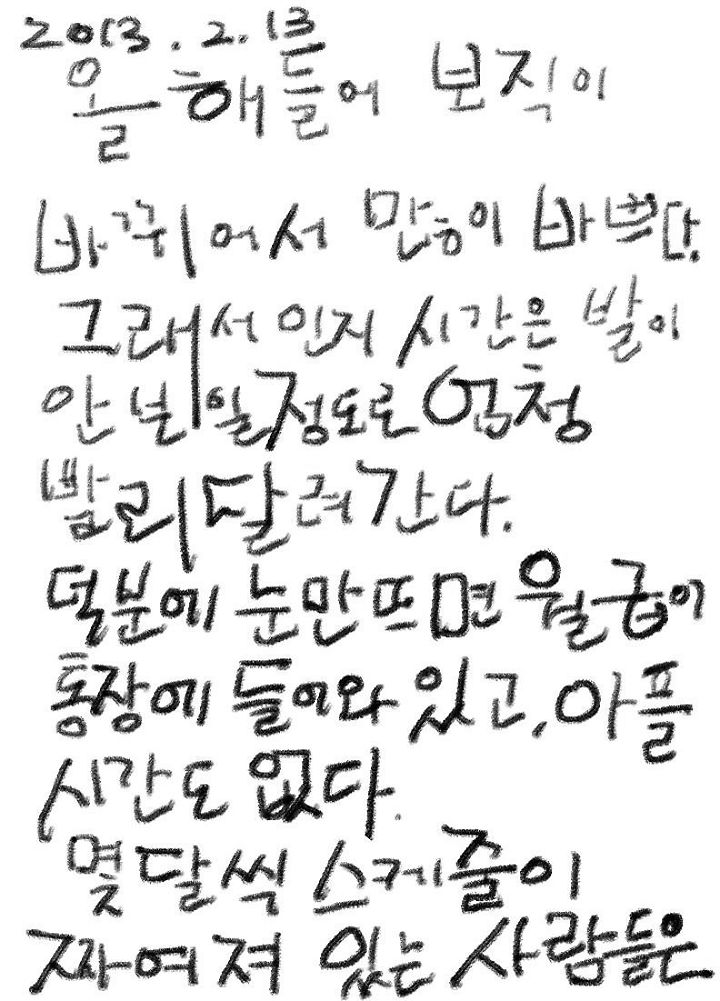 2013.2.13
올해들어 보직이
바뀌어서 많이 바쁘다.
그래서인지 시간은 발이
안보일정도로 엄청
빨리달려간다.
덕분에 눈만뜨면 월급이
통장에 들어와 있고, 아플
시간도 없다.
몇달씩 스케줄이
짜여져 있는 사람들은